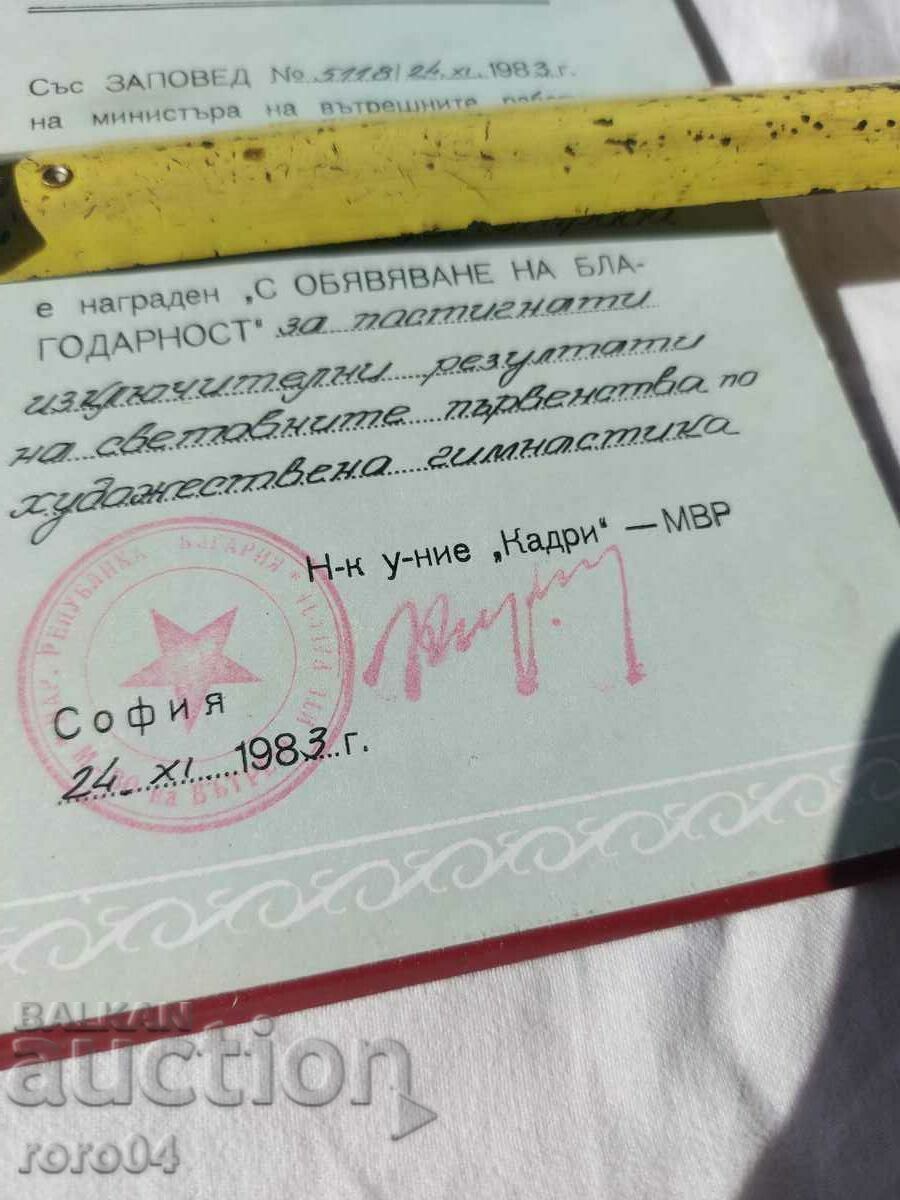 Със ЗАПОВЕД № 5118/24.XI.1983 г.
на министъра на вътрешните
е награден „С ОБЯВЯВАНЕ НА БЛА-
ГОДАРНОСТ" за постигнати
изключителни резултати
на световните първенства по
художествена гимнастика
Н-к у-ние „Кадри" — МВР
НАР. РЕПУБЛИКА БЪЛГАРИЯ
София
24. XI. 1983 г.
BALKAN
auction
roro04